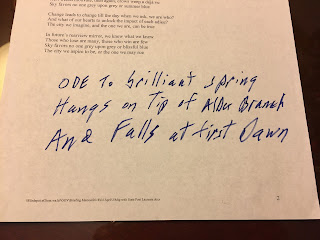 Sky favors no one grey upon grey or
Change leads to change till the day when we ask, we are who?
And what of our hearts to unlock the impact of each other?
The city we imagine, and the one we are, can be true
In future's narrows mirror, we know what we knew
Those who lose are many, those who win are few
Sky favors no one grey upon grey or blissful blue
The city we aspire to be, or the one we rue
ODE To brilliant spring
Hangs on Tip of Alder Branch
And Falls at first Dawn
2